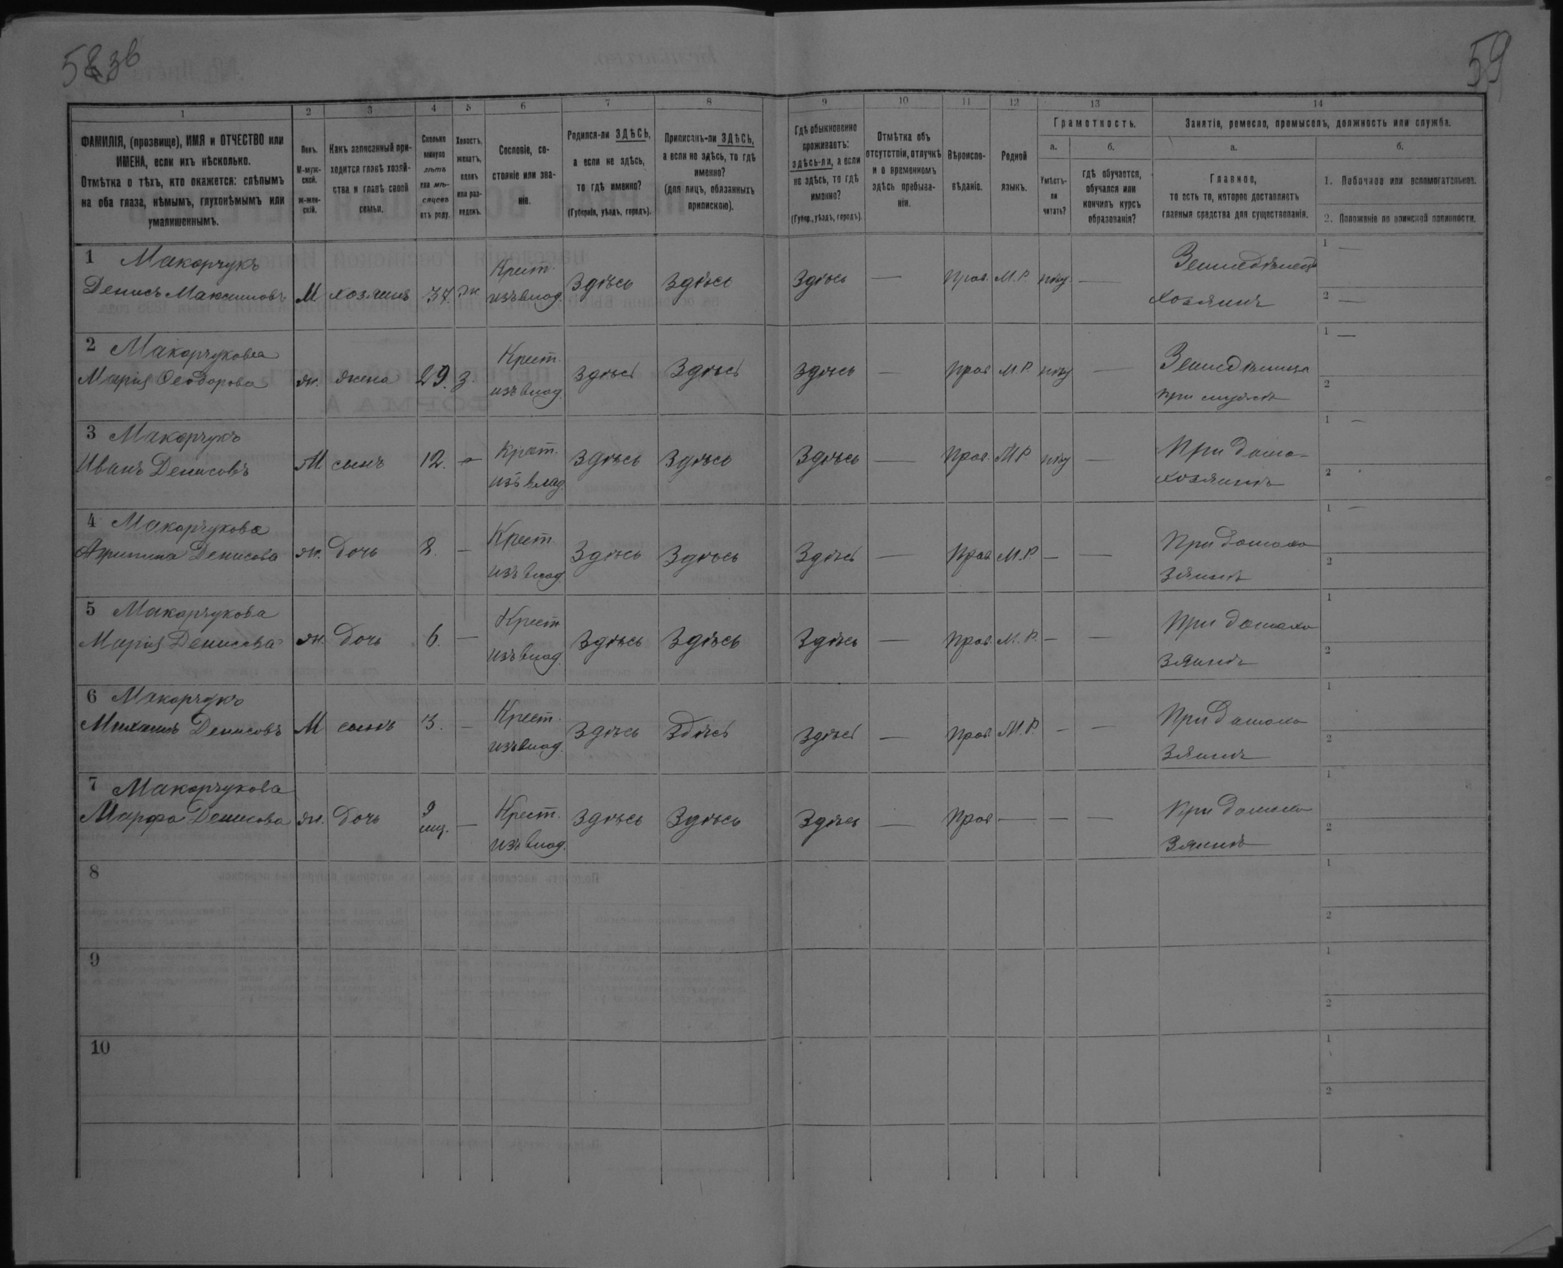 58 зв
59
1 2 3 4 5 6 7 8 9 10 11 12 13 14
ФАМИЛІЯ, (прозвище), ИМЯ и ОТЧЕСТВО или ИМЕНА, если ихъ нѣсколько.
Отмѣтка о тѣхъ, кто окажется: слѣпымъ на оба глаза, нѣмымъ, глухонѣмымъ или умалишеннымъ.
Полъ. М-мужской. Ж-женскій.
Какъ записанный приходится главѣ хозяйства и главѣ своей семьи.
Сколько минуло лѣтъ или мѣсяцевъ отъ роду.
Холостъ, женатъ, вдовъ или разведенъ.
Сословіе, состояніе или званіе.
Родился-ли ЗДѢСЬ, а если не здѣсь, то гдѣ именно?
(Губернія, уѣздъ, городъ).
Приписанъ-ли ЗДѢСЬ, а если не здѣсь, то гдѣ именно?
(для лицъ, обязанныхъ припискою).
Гдѣ обыкновенно проживаетъ: здѣсь-ли, а если не здѣсь, то гдѣ именно?
(Губер., уѣздъ, городъ).
Отмѣтка объ отсутствіи, отлучкѣ и о временномъ здѣсь пребываніи.
Вѣроисповѣданіе.
Родной языкъ.
Грамотность.
а. Умѣетъ-ли читать?
б. Гдѣ обучается, обучался или кончилъ курсъ образованія?
Занятіе, ремесло, промыселъ, должность или служба.
а. Главное, то есть то, которое доставляетъ главныя средства для существованія.
б.
1. Побочное или вспомогательное.
2. Положеніе по воинской повинности.
1 Макарчукъ Крест. Земледѣлецъ 1 —
Денисъ Максимовъ М хозяинъ 34 жн изъ влад Здѣсь Здѣсь Здѣсь — Прав М.Р. нту — хозяинъ 2 —
2 Макарчукова Крест. Земледѣлица 1 —
Марія Ѳеодорова ж. жена 29. з изъ влад Здѣсь Здѣсь Здѣсь — Прав М.Р нту — при мужѣ 2
3 Макарчукъ Крест. При домо- 1 —
Иванъ Денисовъ М сынъ 12. — изъ влад Здѣсь Здѣсь Здѣсь — Прав М.Р нту — хозяинѣ 2
4 Макарчукова Крест При домохо 1 —
Агрипина Денисова ж. дочь 8. — изъ влад Здѣсь Здѣсь Здѣсь — Прав М.Р. — — зяинѣ 2
5 Макарчукова Крест При домохо 1
Марія Денисова ж. дочь 6. — изъ влад Здѣсь Здѣсь Здѣсь — Прав М.Р. — — зяинѣ 2
6 Макарчукъ Крест. При домохо 1
Михаилъ Денисовъ М сынъ 3. — изъ влад. Здѣсь Здѣсь Здѣсь — Прав М.Р. — — зяинѣ 2
7 Макарчукова 9 Крест. При домохо 1
Марфа Денисова ж. дочь мц. — изъ влад. Здѣсь Здѣсь Здѣсь — Прав — — — зяинѣ 2
8 1
2
9 1
2
10 1
2